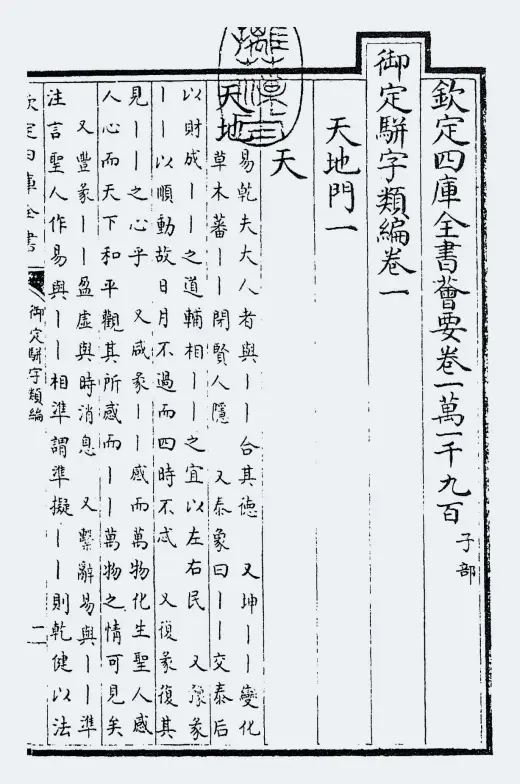 欽定四庫全書薈要卷一萬一千九百 子部
御定駢字類編卷一
天地門一
天
天地
易乾夫大人者與丨丨合其德 又坤丨丨變化
草木蕃丨丨閉賢人隱 又泰象曰丨丨交泰后
以財成丨丨之道輔相丨丨之宜以左右民 又豫彖
丨丨以順動故日月不過而四時不忒 又復彖復其
見丨丨之心乎 又咸彖丨丨感而萬物化生聖人感
人心而天下和平觀其所感而丨丨萬物之情可見矣
又豐彖丨丨盈虛與時消息 又繫辭易與丨丨準
注言聖人作易與丨丨相準謂準擬丨丨則乾健以法
欽定四庫全書
御定駢字類編